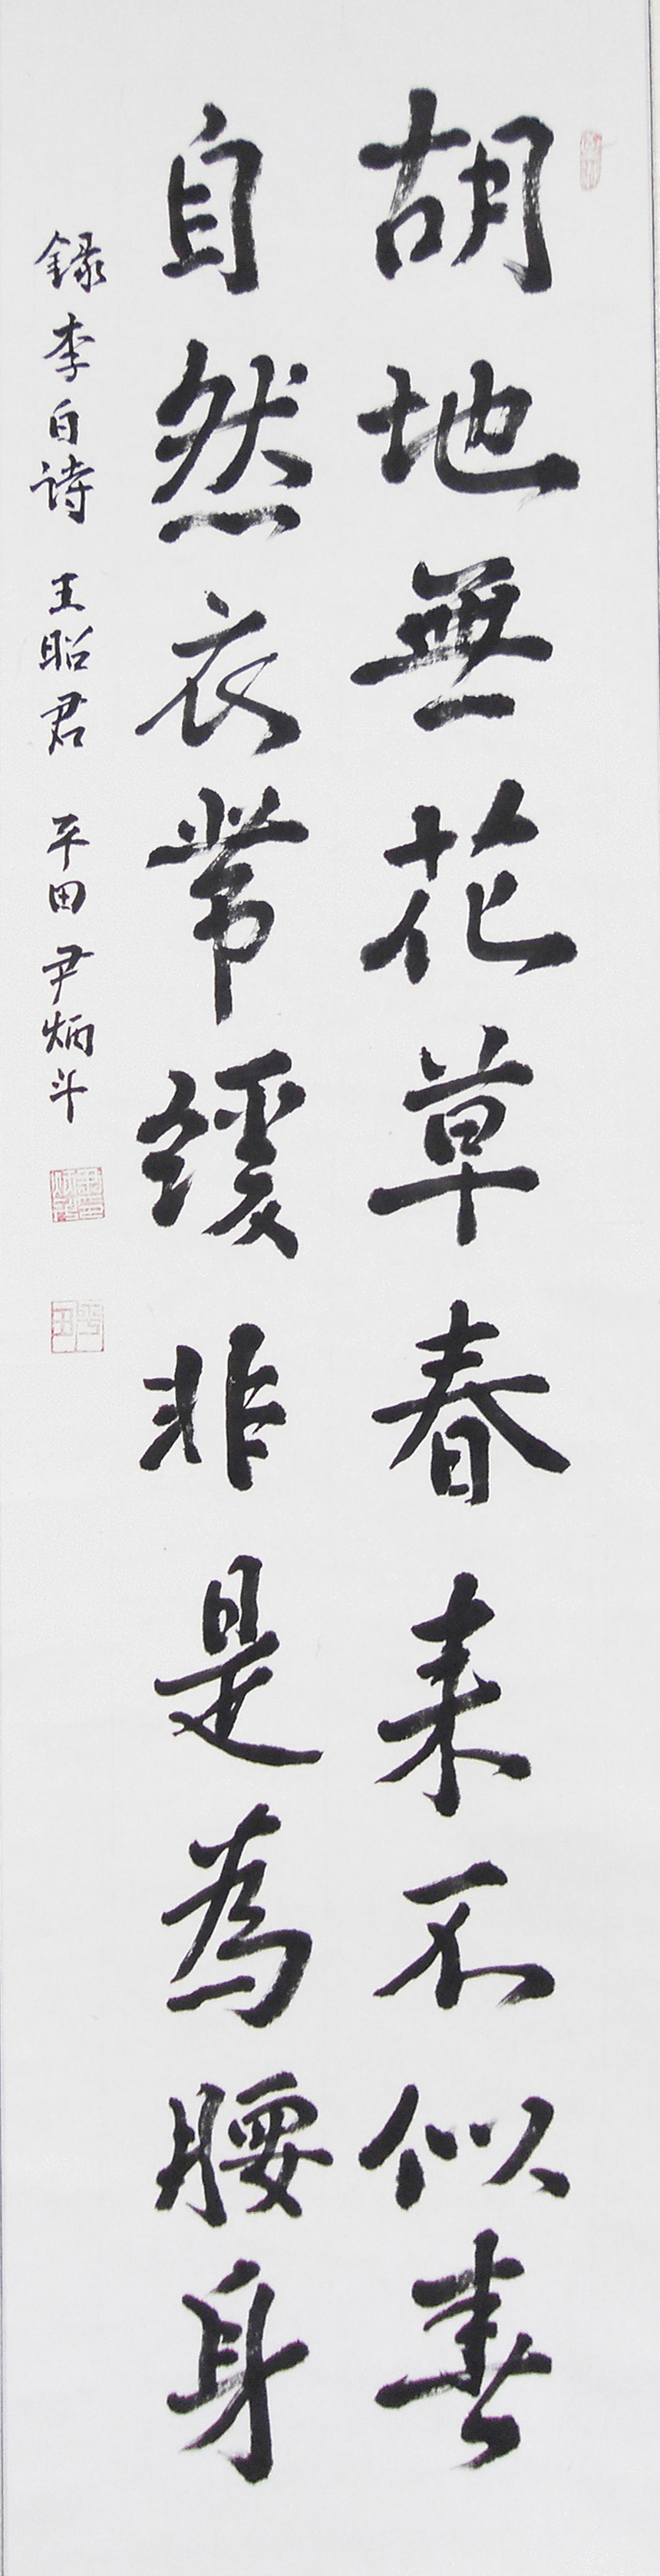 胡地無花草春来不似春
自然衣帶緩非是為腰身
錄李白詩 王昭君 平田 尹炳斗